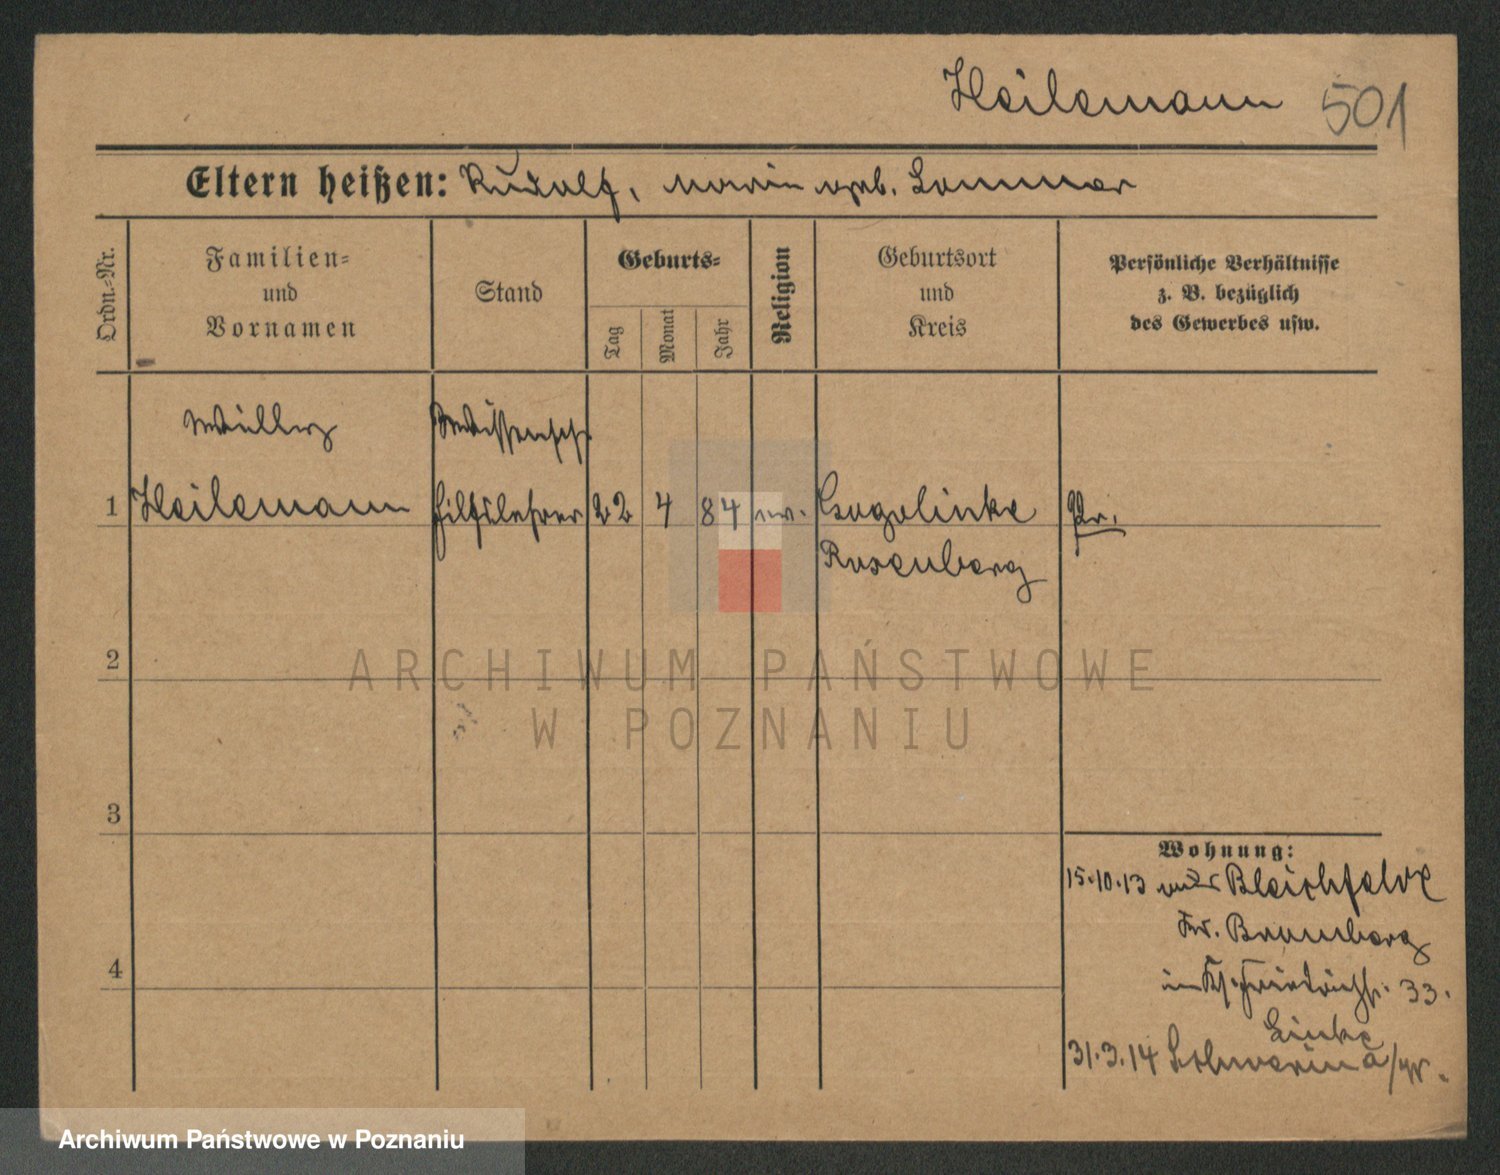 Heilemann 501
Eltern heißen: Rudolf, Marie geb. Lemmer
Ordn.=Nr.
Familien=
und
Vornamen
Stand
Geburts=
Tag
Monat
Jahr
Religion
Geburtsort
und
Kreis
Persönliche Verhältnisse
z. B. bezüglich
des Gewerbes usw.
Willy
Wissensch.
1 Heilemann Hilfslehrer 22 4 84 ev. Pr.
Rosenberg
2
ARCHIWUM PAŃSTWOWE
W POZNANIU
3
Wohnung:
15.10.13 Bleichfelde
Kr. Bromberg
4
33.
Linke
31.3.14 Schwerin a/W.
Archiwum Państwowe w Poznaniu